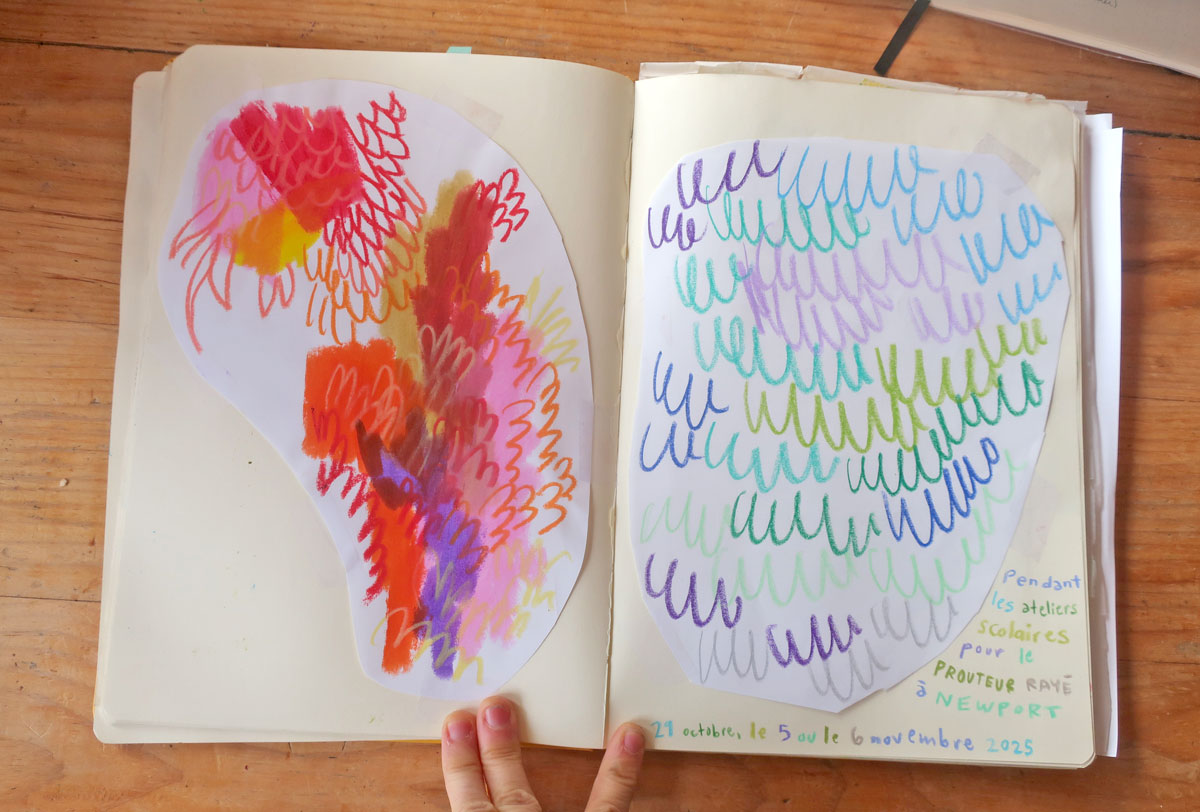 pendant
les ateliers
scolaires
pour le
PROUTEUR RAYÉ
à NEWPORT
21 octobre, le 5 ou le 6 novembre 2025